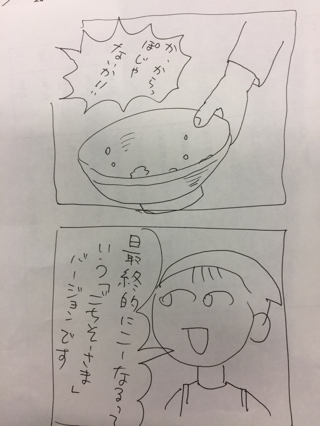 か、からっ
ぽじゃ
ないか!!
最終的にこーなるっつ
いう「ごちそーさま」
バージョンです